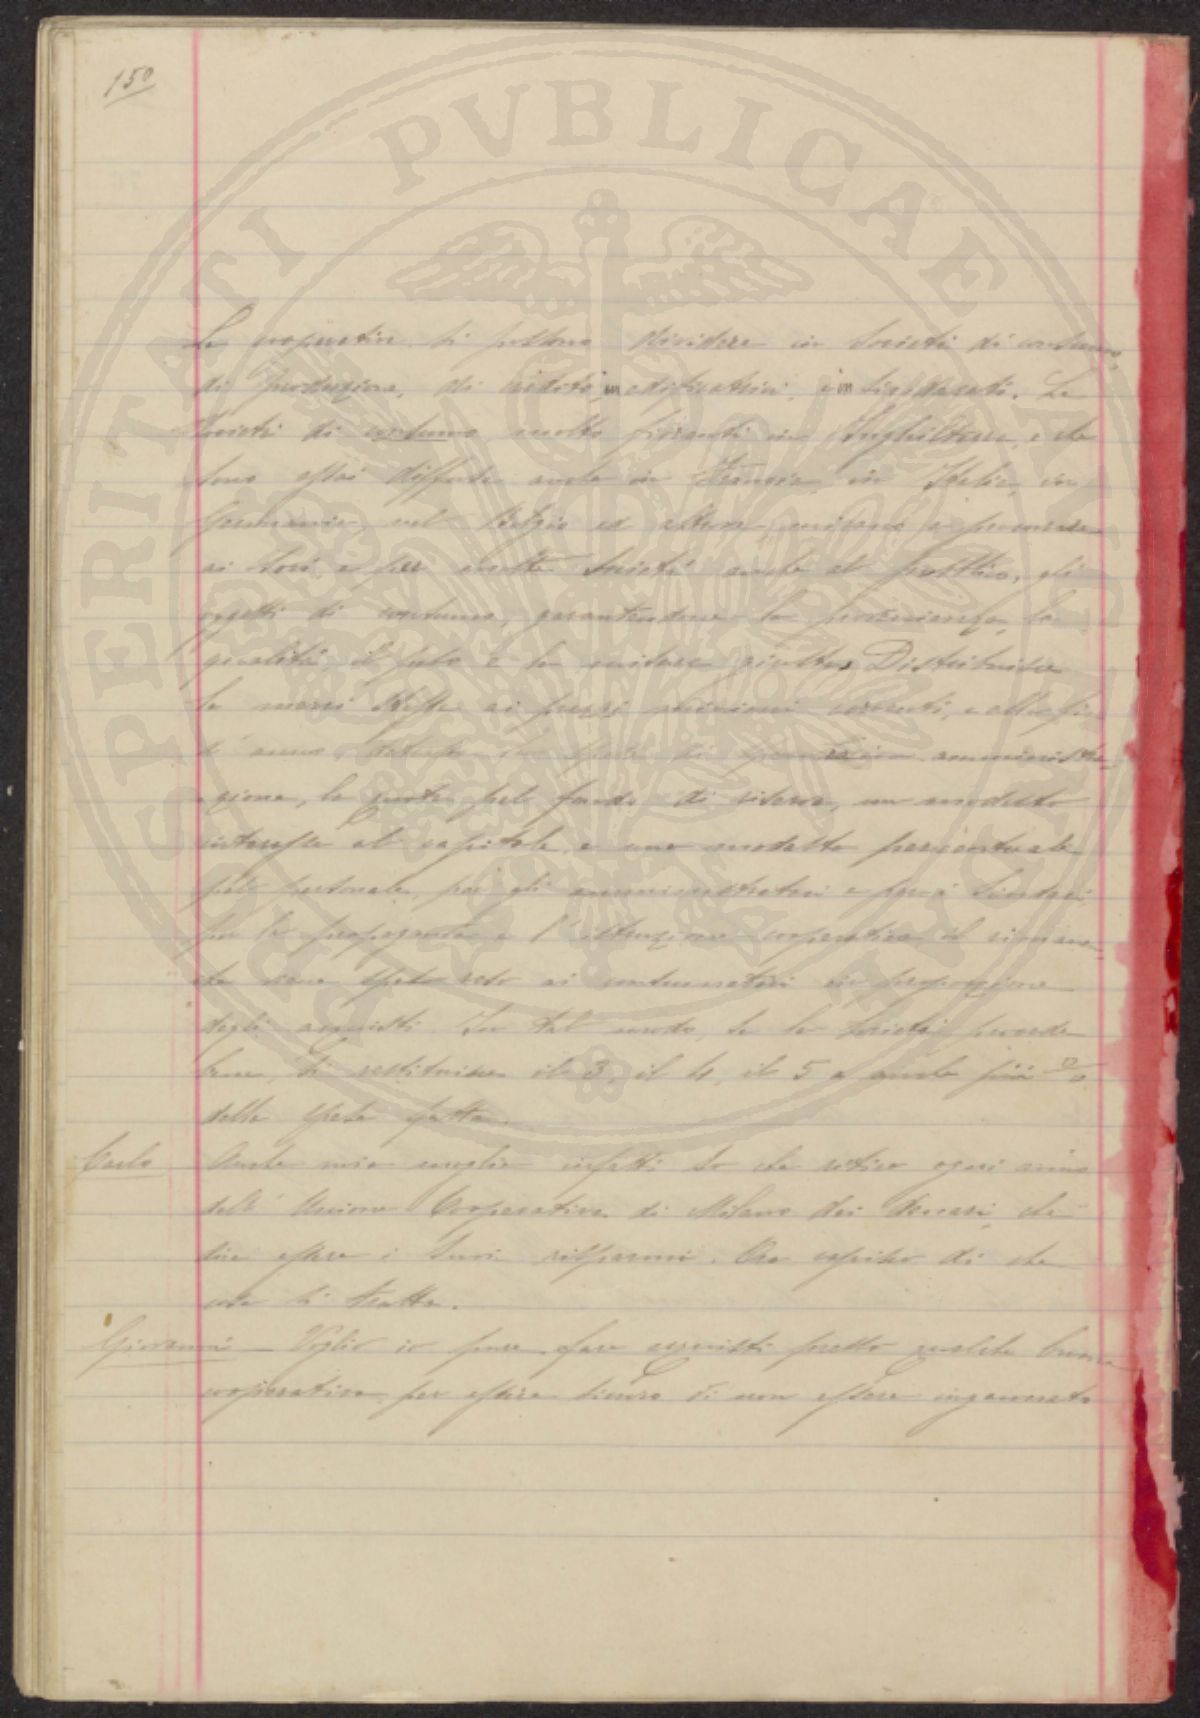 150
PROSPERITATI PVBLICAE AVGENDAE
Le cooperative si possono dividere in Società di consumo,
di produzione, di credito, in edificatrici, e in sindacati. Le
Società di consumo molto fiorenti in Inghilterra, e che
sono assai diffuse anche in Francia, in Italia, in
Germania, nel Belgio ed altrove, mirano a
ai soci, e per molte Società anche al pubblico, gli
oggetti di consumo, garantendone la provenienza, la
qualità, il peso e la misura giusta. Distribuisce
le merci stesse ai prezzi minimi correnti, e alla fine
d'anno, le spese di amministra-
zione, la quota pel fondo di riserva, un modesto
interesse al capitale, e una modesta percentuale
pel personale, per gli amministratori e per i Sindaci,
per la propaganda e l'istruzione cooperativa, il rimanen-
te viene ai consumatori in proporzione
degli acquisti. In tal modo, se la Società procede
bene, si restituisce il 3, il 4, il 5 e anche più %
della spesa fatta.
Carlo Anche mia moglie infatti so che ritira ogni anno
dall'Unione Cooperativa di Milano dei denari, che
dice essere i suoi risparmi. Ora capisco di che
cosa si tratta.
Giovanni - Voglio io pure fare acquisti presso qualche buona
cooperativa per essere sicuro di non essere ingannato